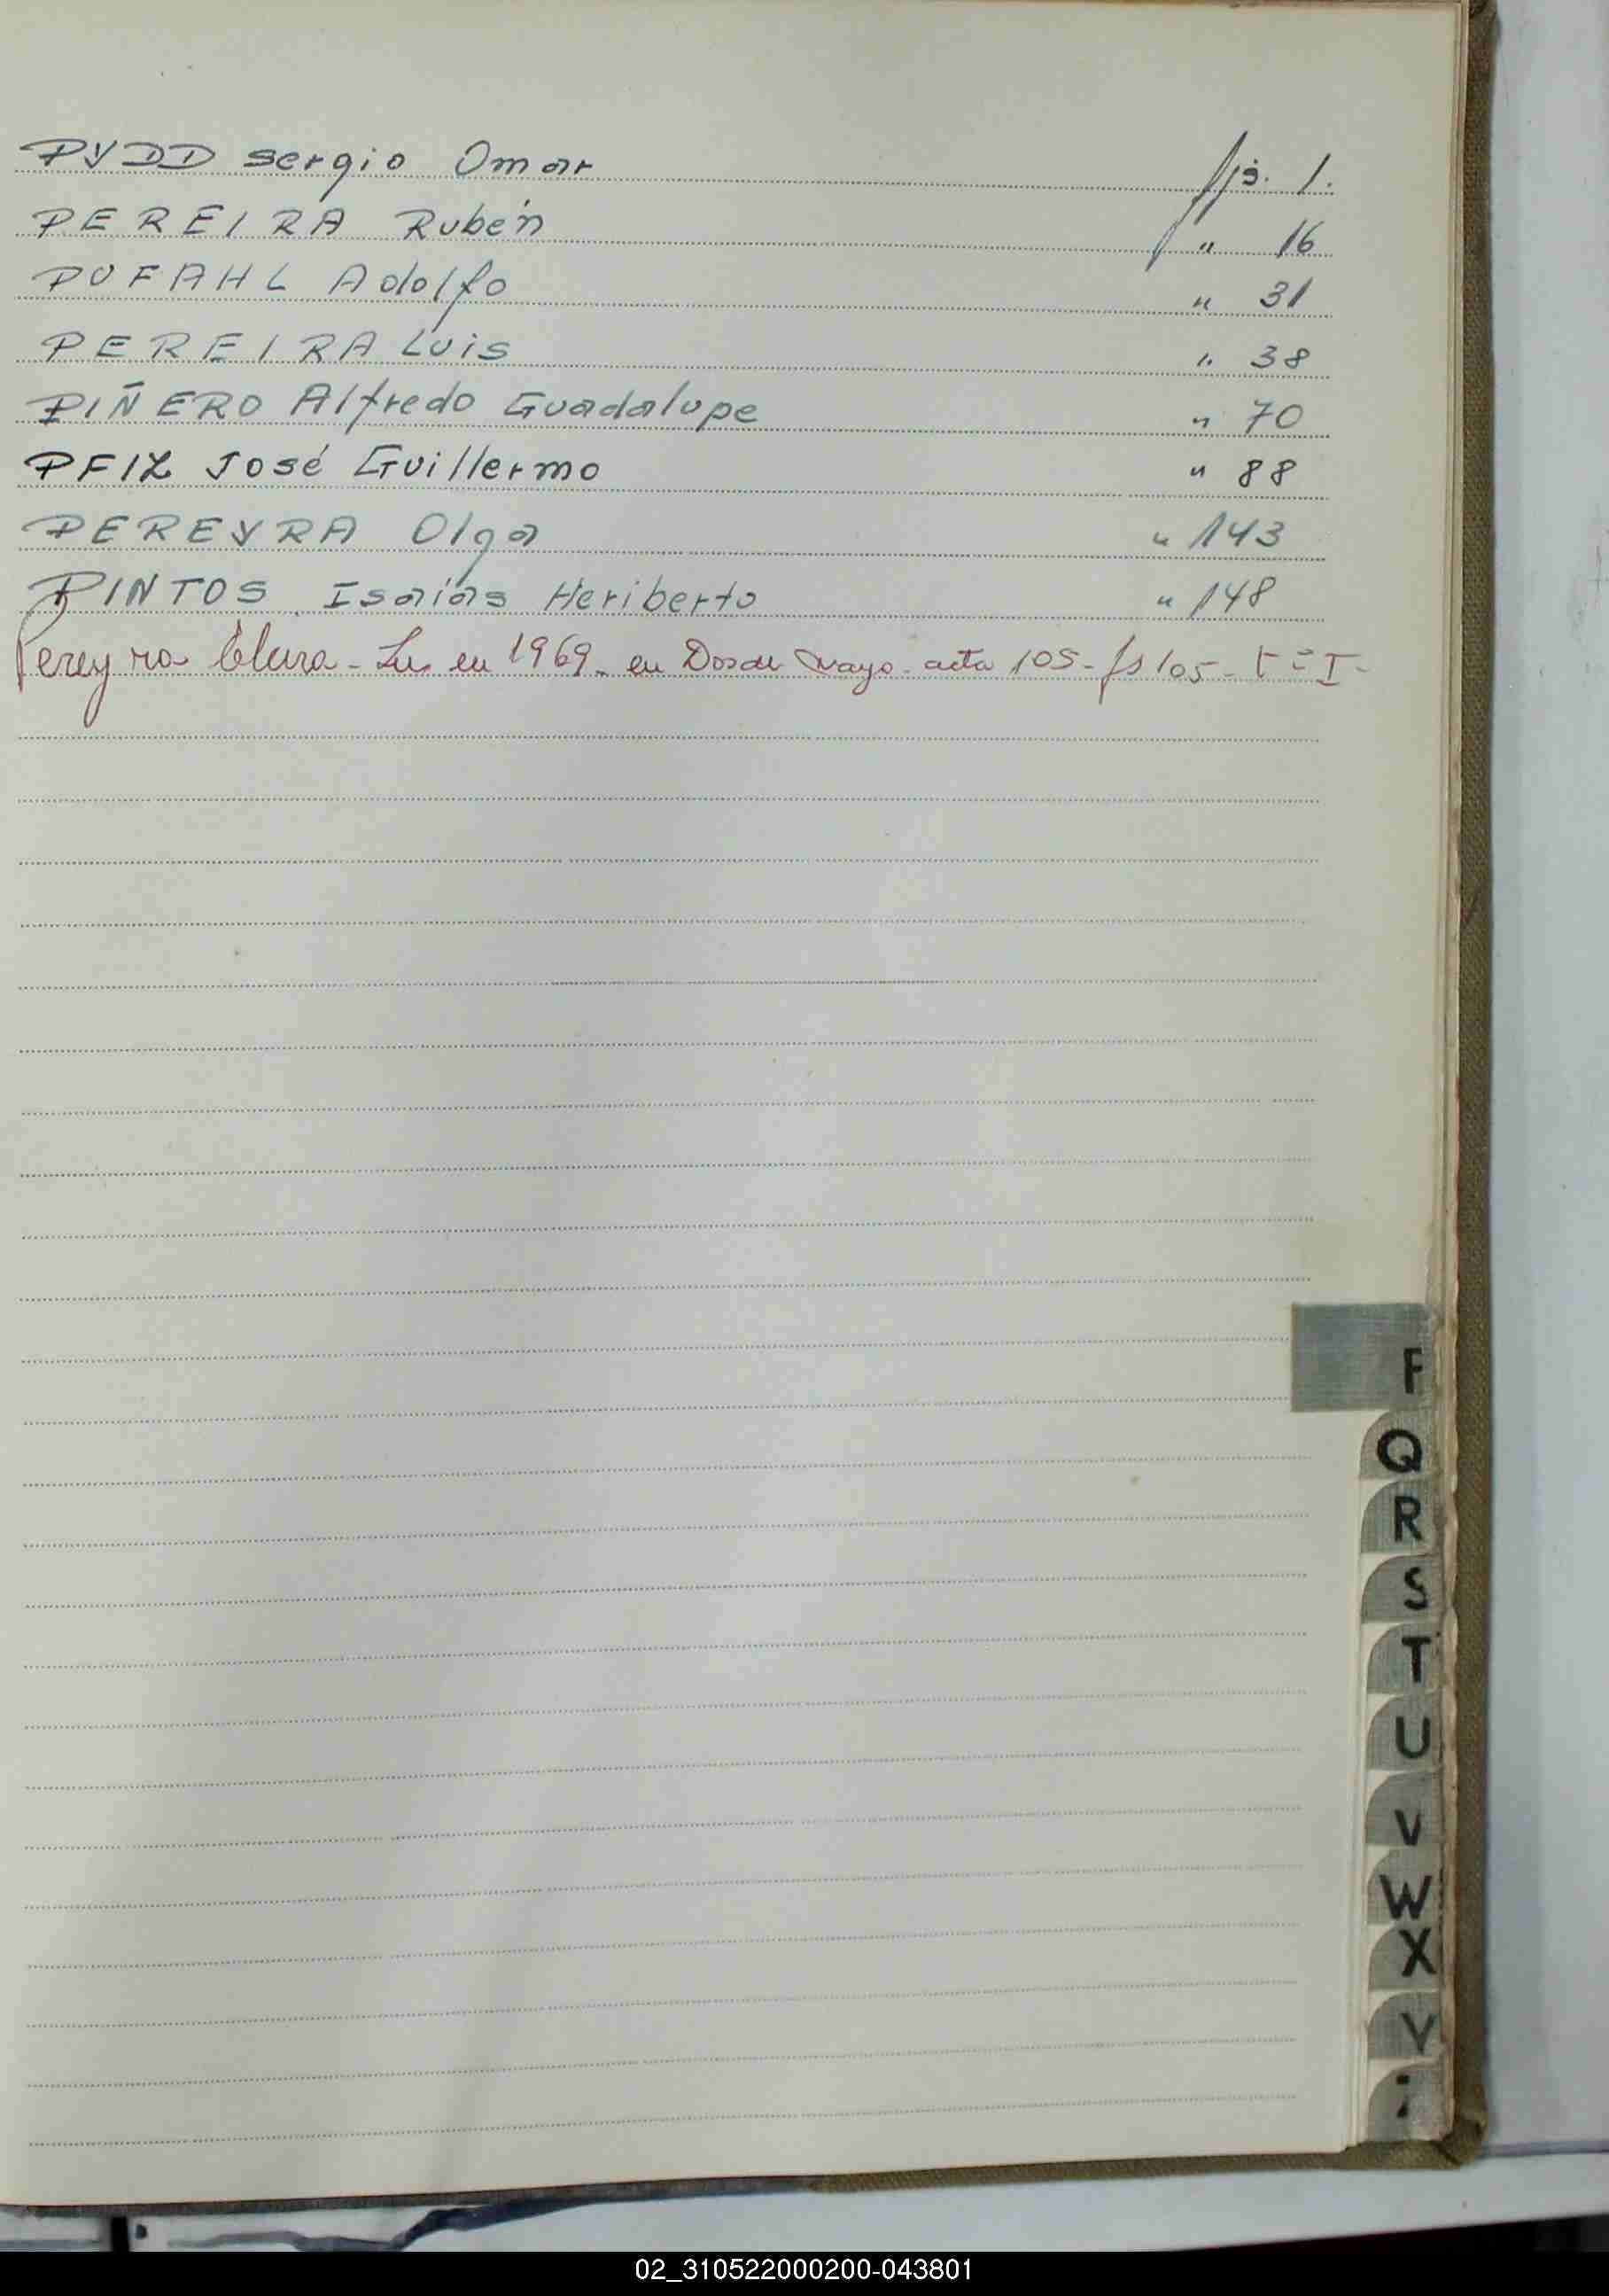 PYDD Sergio Omar fjs. 1.
PEREIRA Rubén " 16
PUFAHL Adolfo " 31
PEREIRA Luis " 38
PIÑERO Alfredo Guadalupe " 70
PFIL José Guillermo " 88
PEREYRA Olga " 143
PINTOS Isaías Heriberto " 148
Pereyra Clara - en 1969 - en Dos de Mayo - acta 105 - fs 105 - tº I -
P
Q
R
S
T
U
V
W
X
Y
Z
02_310522000200-043801